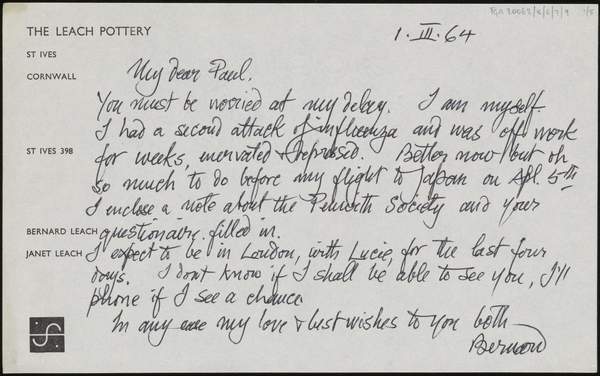 THE LEACH POTTERY
ST IVES
CORNWALL
ST IVES 398
BERNARD LEACH
JANET LEACH
1. III. 64
My dear Paul.
You must be worried at my delay. I am myself.
I had a second attack of influenza and was off work
for weeks, enervated & depressed. Better now but oh
so much to do before my flight to Japan on Apl. 5th
I enclose a note about the Penwith Society and your
questionaire filled in.
I expect to be in London, with Lucie, for the last four
days. I dont know if I shall be able to see you, I'll
phone if I see a chance
In any case my love & best wishes to you both
Bernard